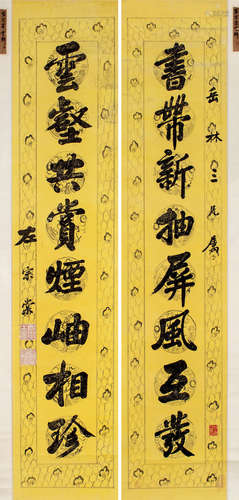 書帶新抽屏風互發
岳林三兄屬
雲壑共賞煙岫相珍
左宗棠